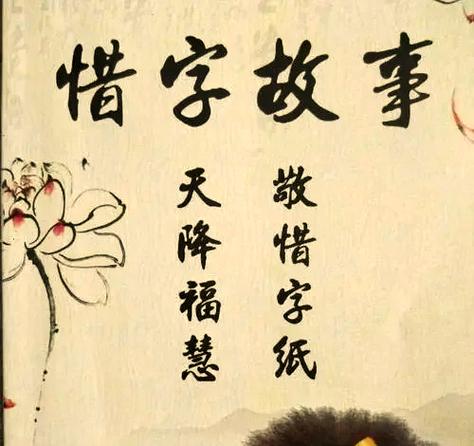 惜字故事
敬惜字紙
天降福慧